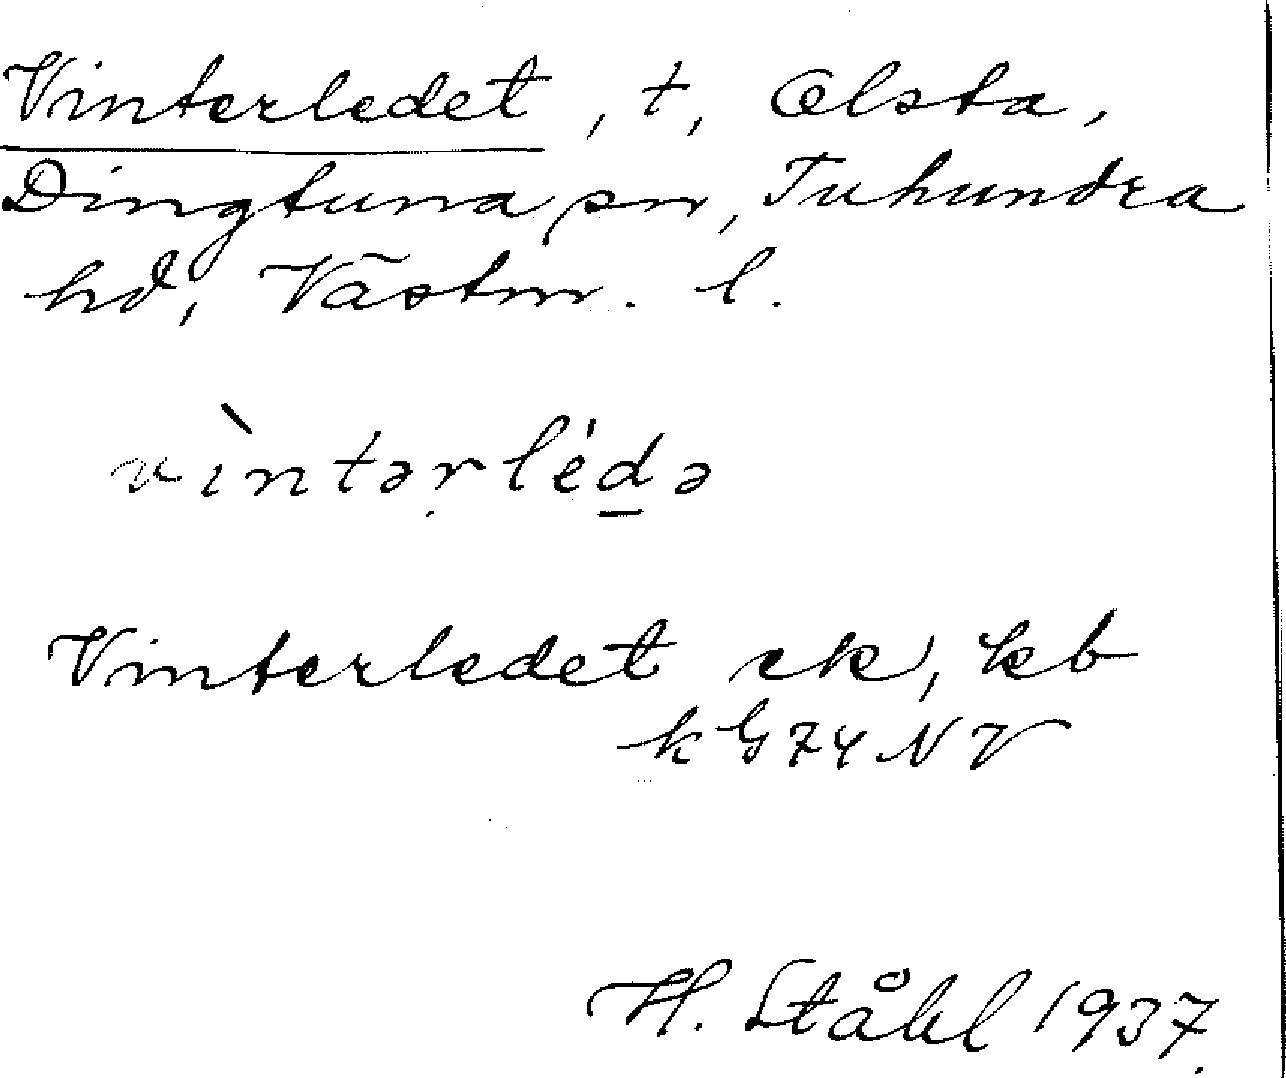 Vinterledet, t, Ålsta,
Dingtuna sn, Tuhundra
hd, Västm. l.
vìntəṛléd̲ə
Vinterledet ek, kb
k G 74 NV
H. Ståhl 1937.